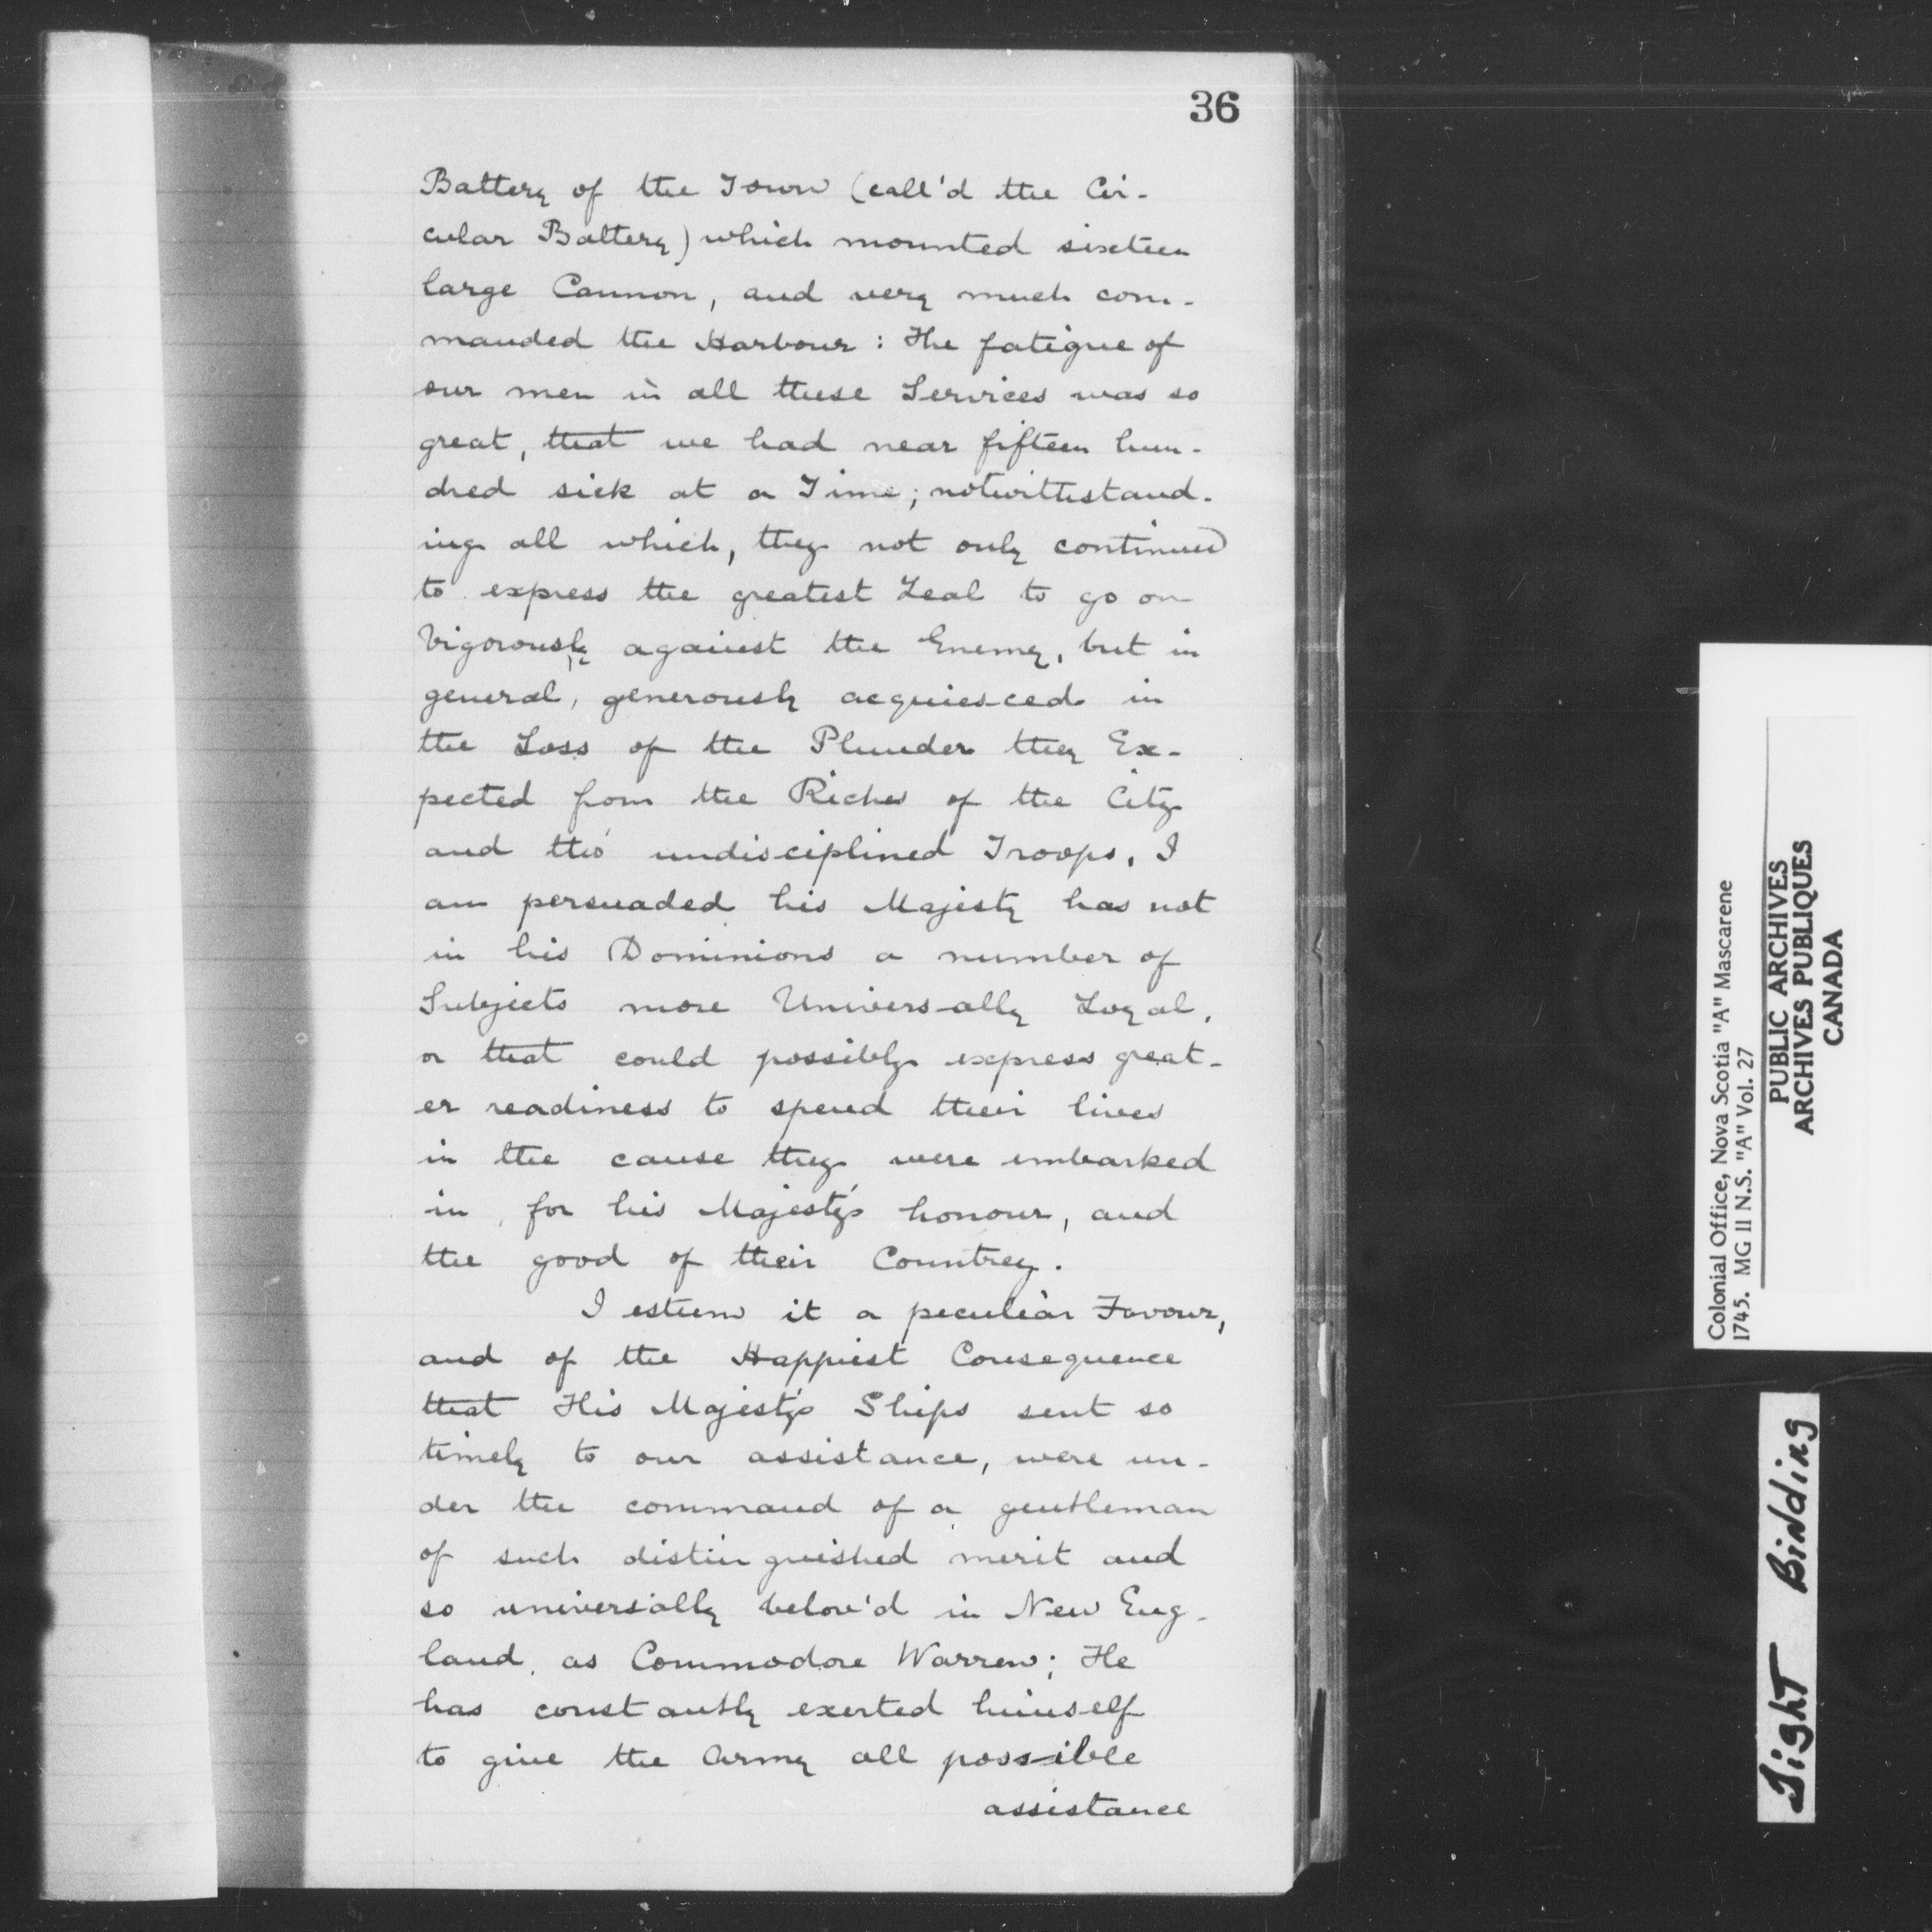 36
Battery of the Town (call'd the Cir-
cular Battery) which mounted sixteen
large Cannon, and very much com-
manded the Harbour: The fatigue of
our men in all these Services was so
great, that we had near fifteen hun-
dred sick at a Time; notwithstand-
ing all which, they not only continued
to express the greatest Zeal to go on
Vigorously against the Enemy, but in
general, generously acquiesced in
the Loss of the Plunder they Ex-
pected from the Riches of the City
and tho' undisciplined Troops, I
am persuaded his Majesty has not
in his Dominions a number of
Subjects more Universally Loyal,
or that could possibly express great-
er readiness to spend their lives
in the cause they were embarked
in, for his Majesty's honour, and
the good of their Countrey.
I esteem it a peculiar Favour,
and of the Happiest Consequence
that His Majesty's Ships sent so
timely to our assistance, were un-
der the command of a gentleman
of such distinguished merit and
so universally belov'd in New Eng-
land, as Commodore Warren; He
has constantly exerted himself
to give the Army all possible
assistance
Colonial Office, Nova Scotia "A" Mascarene
1745. MG 11 N.S. "A" Vol. 27
PUBLIC ARCHIVES
ARCHIVES PUBLIQUES
CANADA
Tight Binding